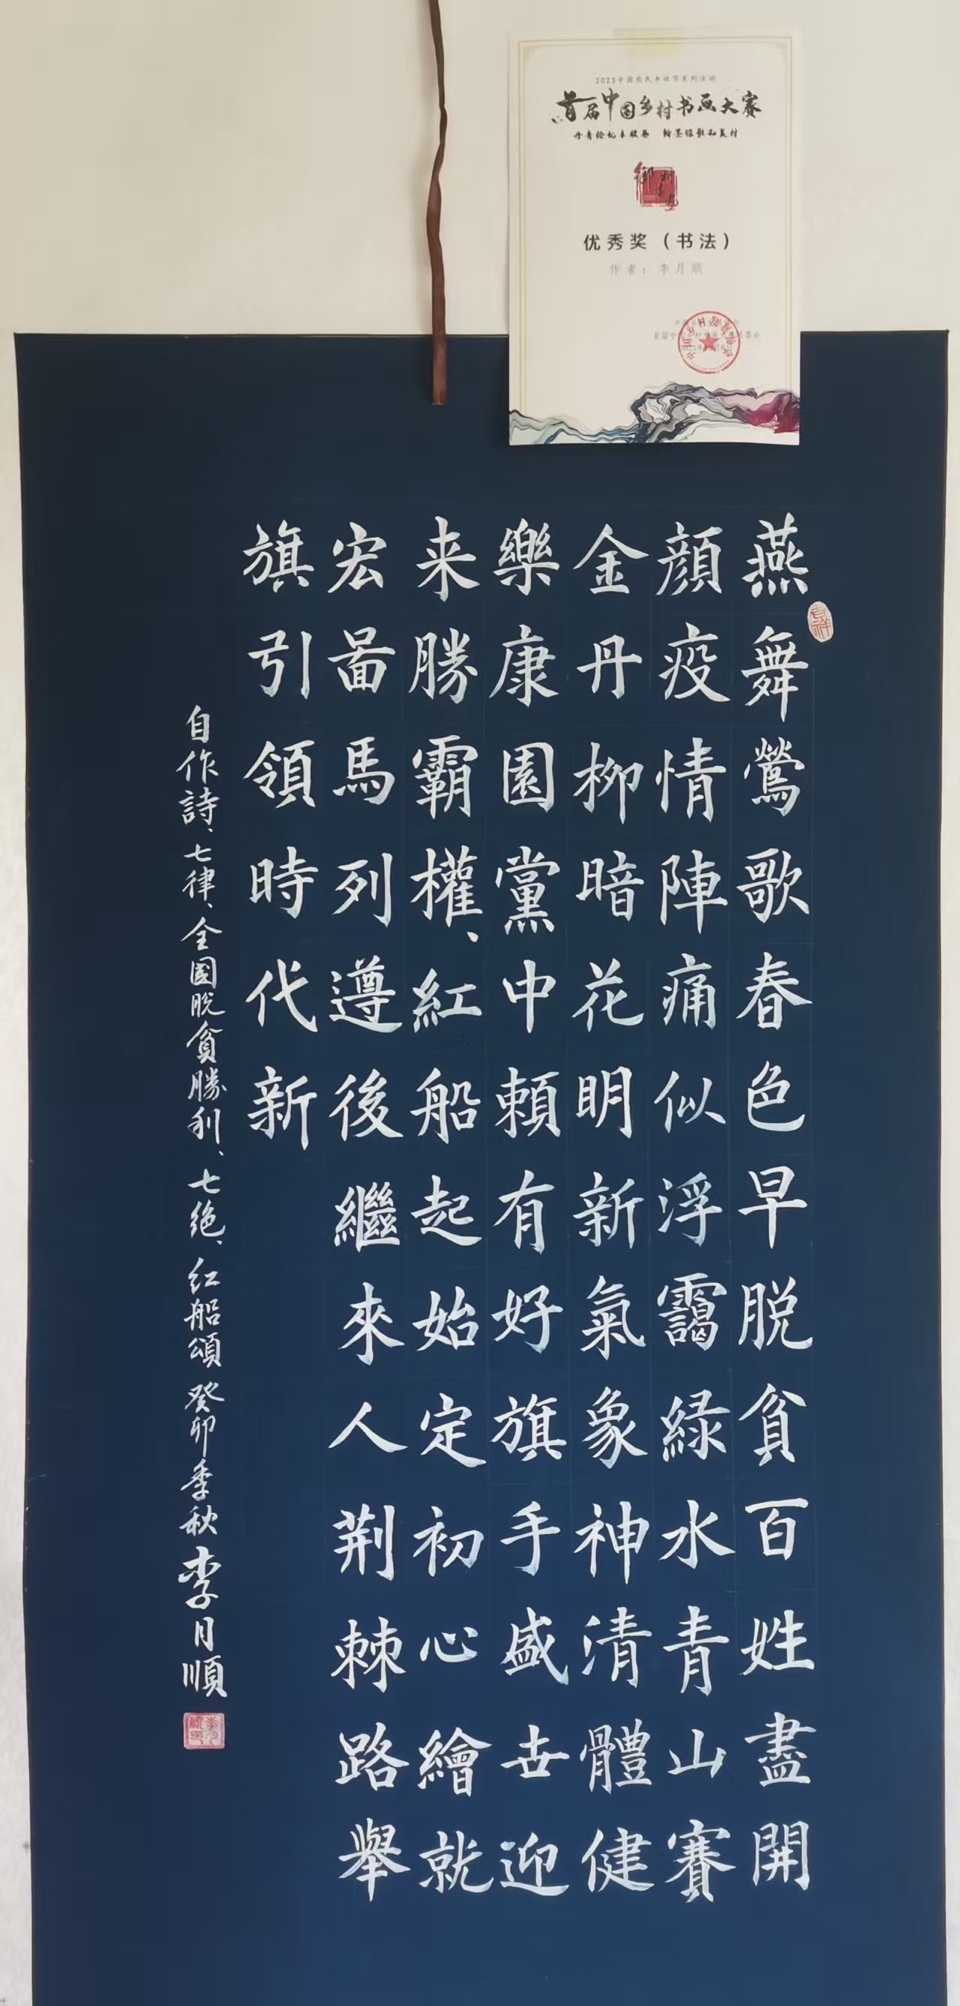 2023中国农民丰收节系列活动
首届中国乡村书画大赛
丹青绘就丰收卷 翰墨抒歌和美村
优秀奖（书法）
作者：李月顺
燕舞鶯歌春色早脱貧百姓盡開
顔疫情陣痛似浮靄緑水青山賽
金丹柳暗花明新氣象神清體健
樂康園黨中頼有好旗手盛世迎
来勝霸權、紅船起始定初心繪就
宏圖馬列遵後繼來人荆棘路舉
旗引領時代新
自作詩、七律、全國脱貧勝利、七绝、红船頌 癸卯季秋 李月順
吉祥